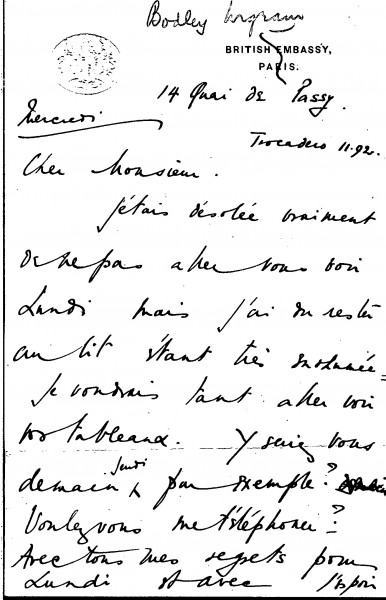 Bodley Ingram
BRITISH EMBASSY,
PARIS.
14 Quai de Passy.
Mercredi
Trocadero 11.92.
Cher Monsieur.
J'étais désolée vraiment
de ne pas aller vous voir
Lundi mais j'ai du rester
au lit étant très enrhumée=
Je voudrais tant aller voir
vos tableaux. Y seriez vous
demain jeudi par exemple?
Voulez vous me téléphoner?
Avec tous mes regrets pour
Lundi et avec l'espoir